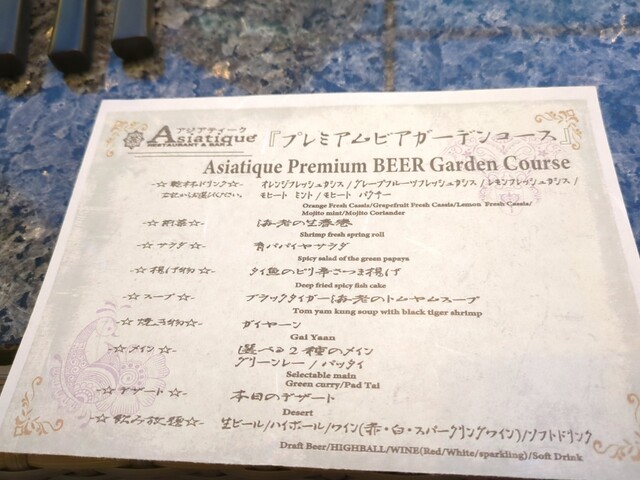 アジアティーク
Asiatique
RESTAURANT & BAR
『プレミアムビアガーデンコース』
Asiatique Premium BEER Garden Course
-☆ 乾杯ドリンク☆- オレンジフレッシュカシス / グレープフルーツフレッシュカシス / レモンフレッシュカシス /
お選びください。 モヒート ミント / モヒート パクチー
Orange Fresh Cassis/Grapefruit Fresh Cassis/Lemon Fresh Cassis/
Mojito mint/Mojito Coriander
-☆ 前菜 ☆- 海老の生春巻
Shrimp fresh spring roll
-☆ サラダ ☆- 青パパイヤサラダ
Spicy salad of the green papaya
-☆ 揚げ物 ☆- タイ魚のピリ辛さつま揚げ
Deep fried spicy fish cake
-☆ スープ ☆- ブラックタイガー海老のトムヤムスープ
Tom yam kung soup with black tiger shrimp
-☆ 焼き物☆- ガイヤーン
Gai Yaan
-☆ メイン ☆- 選べる2種のメイン
グリーンレー / パッタイ
Selectable main
Green curry/Pad Tai
-☆ デザート ☆- 本日のデザート
Desert
-☆ 飲み放題 ☆- 生ビール/ハイボール/ワイン(赤・白・スパークリングワイン)/ソフトドリンク
Draft Beer/HIGHBALL/WINE(Red/White/sparkling)/Soft Drink